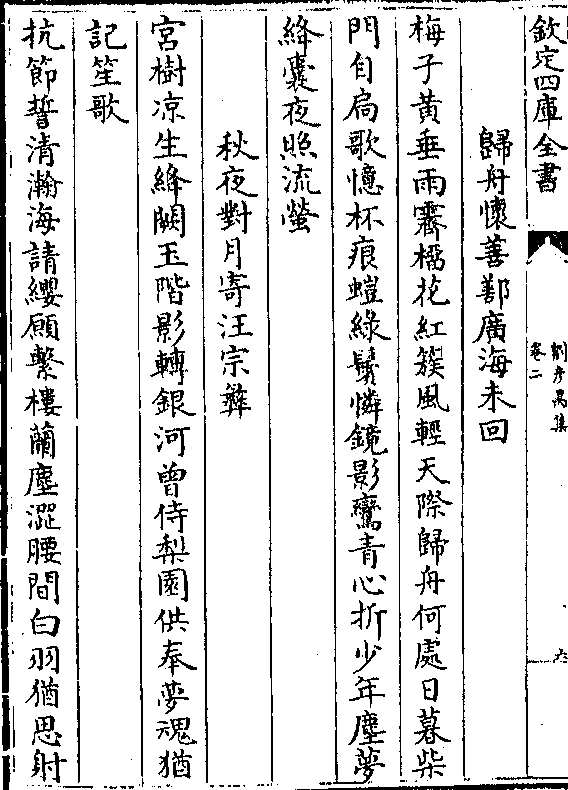 欽定四庫全書
劉彦昺集
卷二
六
歸舟懷善鄣廣海未回
梅子黃垂雨霽榴花紅簇風輕天際歸舟何處日暮柴
門自扃歌憶杯痕螘綠鬢憐鏡影鸞青心折少年塵夢
絳囊夜照流螢
秋夜對月寄汪宗彝
宮樹凉生絳闕玉階影轉銀河曾侍梨園供奉夢魂猶
記笙歌
抗節誓清瀚海請纓願繫樓蘭塵澀腰間白羽猶思射